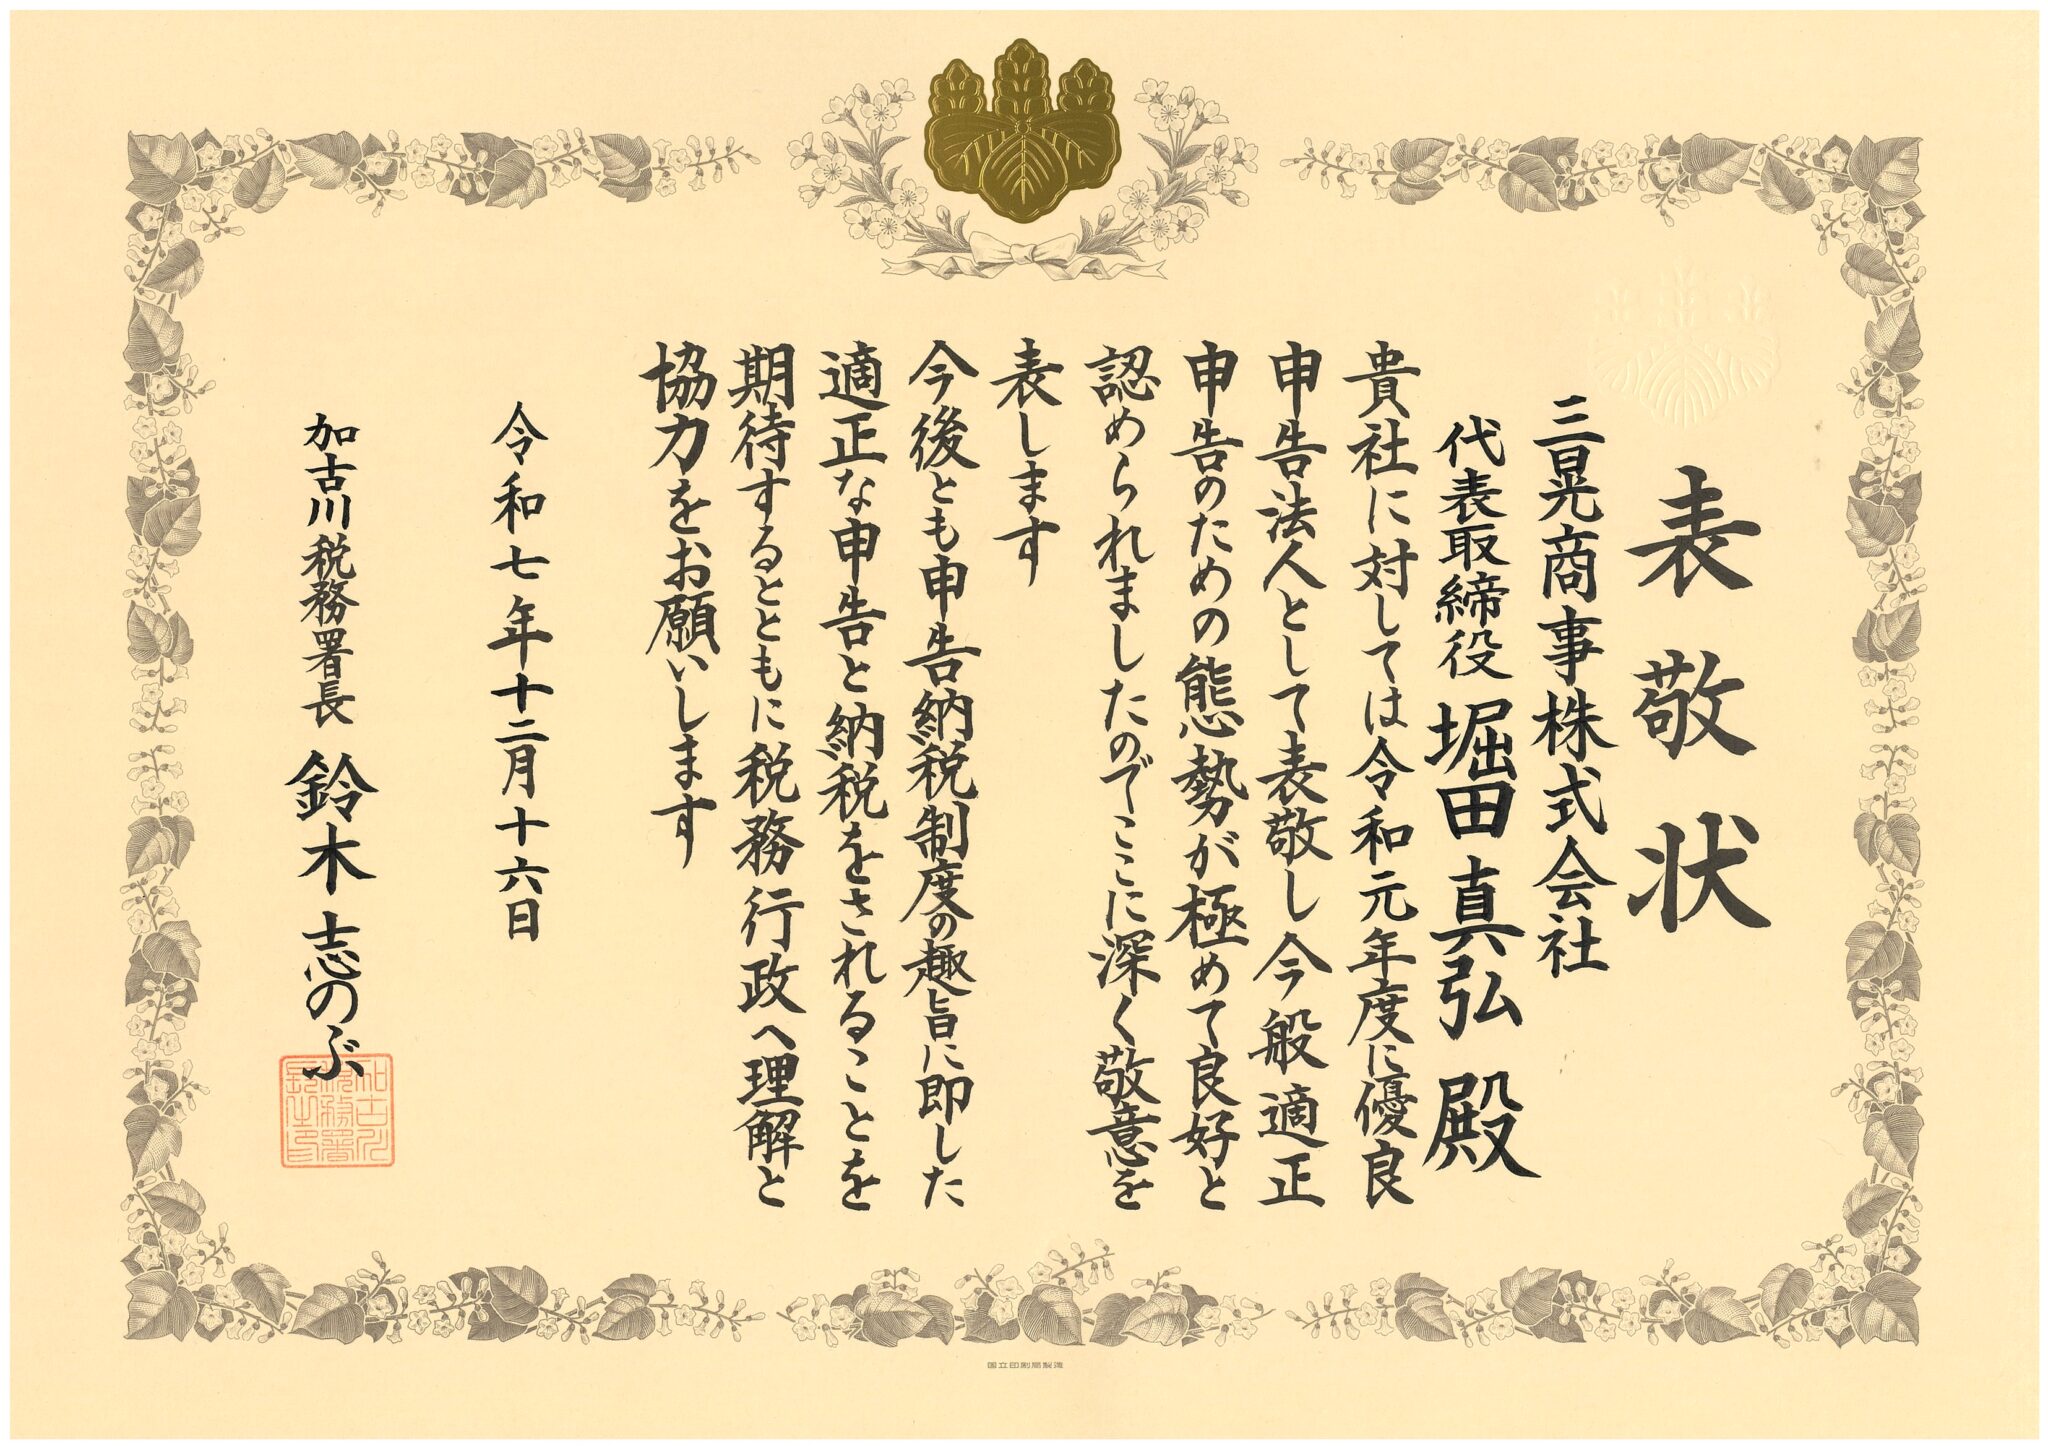 表敬状
三晃商事株式会社
代表取締役 堀田真弘 殿
貴社に対しては令和元年度に優良
申告法人として表敬し今般適正
申告のための態勢が極めて良好と
認められましたのでここに深く敬意を
表します
今後とも申告納税制度の趣旨に即した
適正な申告と納税をされることを
期待するとともに税務行政へ理解と
協力をお願いします
令和七年十二月十六日
加古川税務署長 鈴木志のぶ
加古川税務署長之印
国立印刷局製造